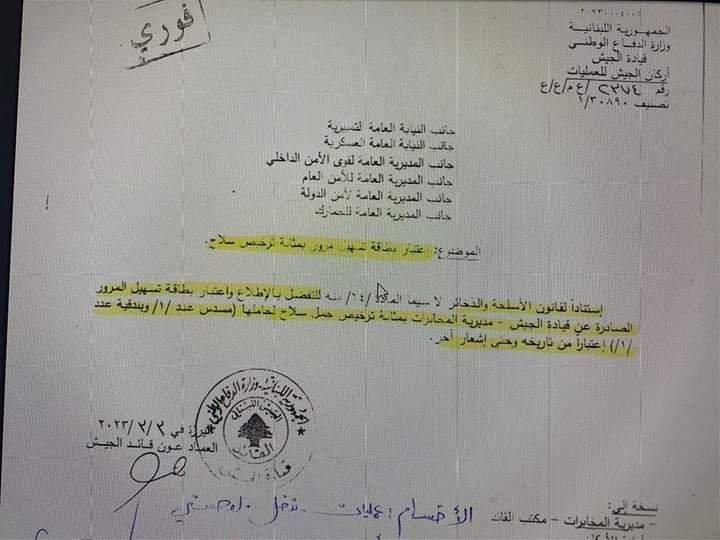 فوري
٢٠٢٣٠٠٠٤٠٠
الجمهورية اللبنانية
وزارة الدفاع الوطني
قيادة الجيش
أركان الجيش للعمليات
رقم ٢٣٧٤ /ع م/ع/ع
تصنيف ١/٣٠٨٩٠
جانب النيابة العامة التمييزية
جانب النيابة العامة العسكرية
جانب المديرية العامة لقوى الأمن الداخلي
جانب المديرية العامة للأمن العام
جانب المديرية العامة لأمن الدولة
جانب المديرية العامة للجمارك
الموضوع: إعتبار بطاقة تسهيل مرور بمثابة ترخيص سلاح.
إستناداً لقانون الأسلحة والذخائر لا سيما المادة /٢٤/ منه للتفضل بالإطلاع واعتبار بطاقة تسهيل المرور
الصادرة عن قيادة الجيش – مديرية المخابرات بمثابة ترخيص حمل سلاح لحاملها (مسدس عدد /١/ وبندقية عدد
/١/) إعتباراً من تاريخه وحتى إشعار آخر.
اليرزة في ٢٠٢٣/٣/٣
العماد عون قائد الجيش
الجمهورية اللبنانية - وزارة الدفاع الوطني
الجيش اللبناني
القائد
قيادة الجيش
نسخة إلى:
– مديرية المخابرات – مكتب القائد
الأقسام : عمليات